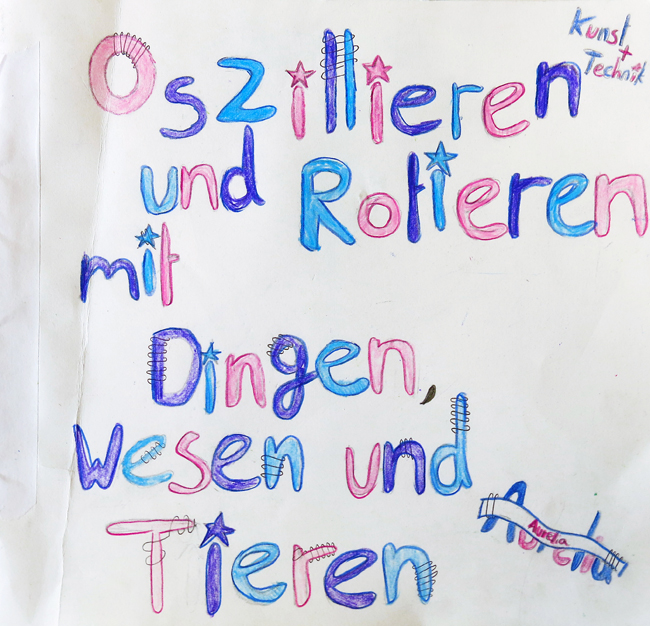 Kunst
+
Technik
Oszillieren
und Rotieren
mit
Dingen,
Wesen und
Tieren
Aurelia
Aurelia